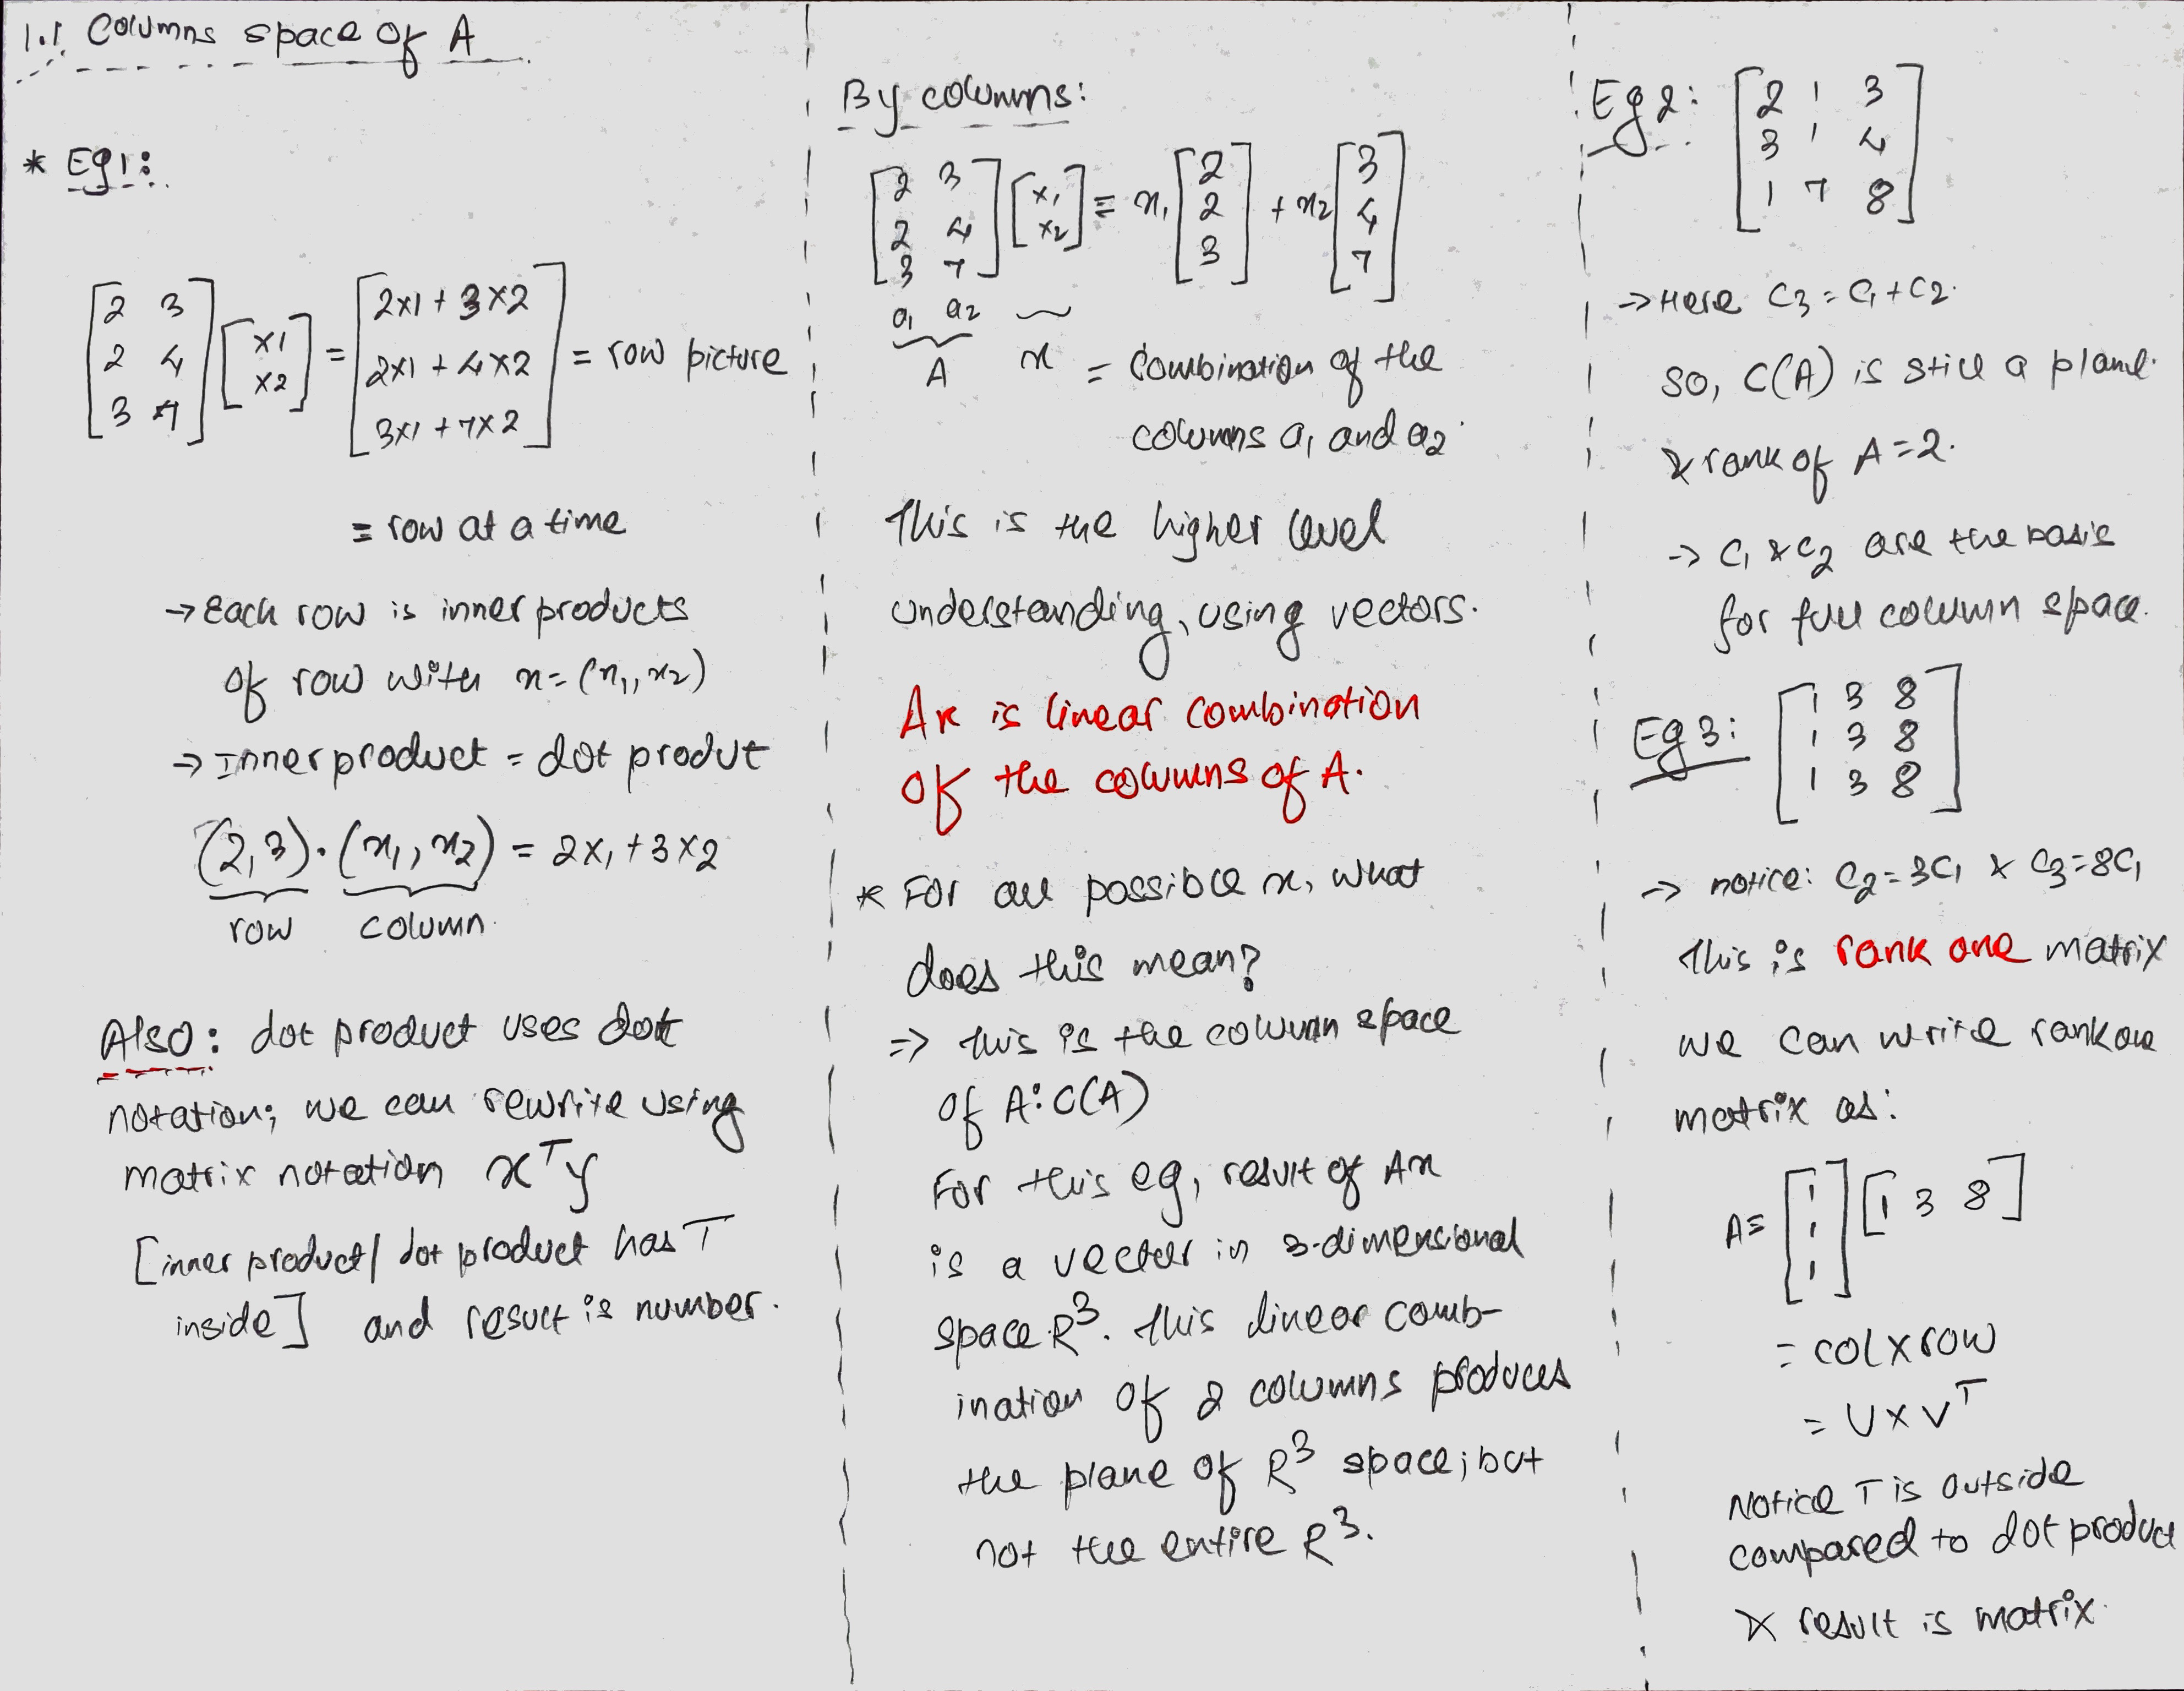 1.1. Columns space of A
* Eg1:
[2 3
2 4
3 7] [x1
x2] = [2x1 + 3x2
2x1 + 4x2
3x1 + 7x2] = row picture
= row at a time
→ Each row is inner products
of row with x = (x1, x2)
→ Inner product = dot produt
(2,3) · (x1, x2) = 2x1 + 3x2
row column.
Also: dot product uses dot
notation; we can rewrite using
matrix notation xᵀy
[inner product/ dot product has T
inside] and result is number.
By columns:
[2 3
2 4
3 7] [x1
x2] = x1 [2
2
3] + x2 [3
4
7]
a1 a2
A x = Combination of the
columns a1 and a2.
This is the higher level
understanding, using vectors.
Ax is linear combination
of the columns of A.
* For all possible x, what
does this mean?
⇒ This is the column space
of A: C(A)
For this eg, result of Ax
is a vector in 3-dimensional
space R³. This linear comb-
ination of 2 columns produces
the plane of R³ space; but
not the entire R³.
Eg 2: [2 1 3
3 1 4
1 7 8]
→ Here C3 = C1 + C2.
so, C(A) is still a plane.
& rank of A = 2.
→ C1 & C2 are the basis
for full column space.
Eg 3: [1 3 8
1 3 8
1 3 8]
→ notice: C2 = 3C1 & C3 = 8C1
This is rank one matrix
we can write rank one
matrix as:
A = [1
1
1] [1 3 8]
= col X row
= U X Vᵀ
Notice T is outside
compared to dot product
& result is matrix.